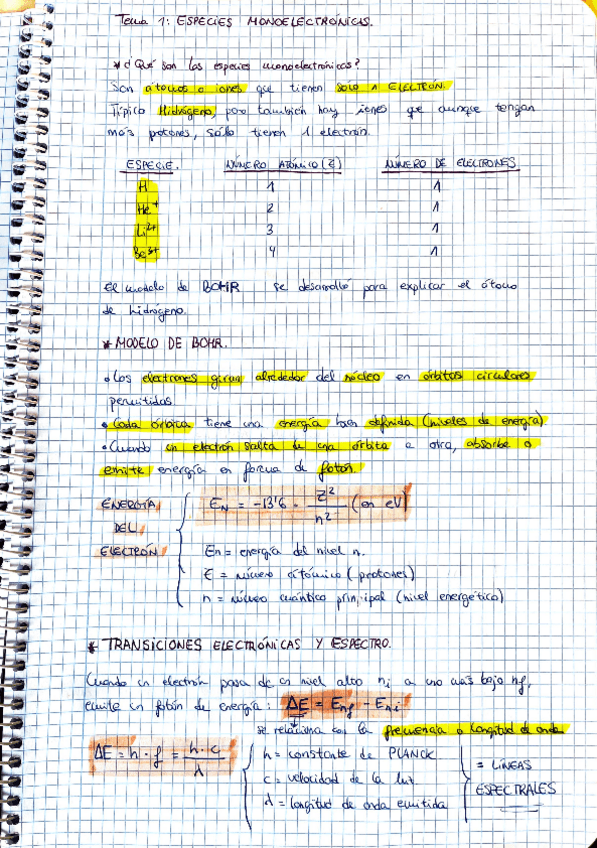 Tema 1: ESPECIES MONOELECTRÓNICAS.
* ¿Qué son las especies monoelectrónicas?
Son átomos o iones que tienen SOLO 1 ELECTRÓN.
Típico Hidrógeno, pero también hay iones que aunque tengan
más protones, sólo tienen 1 electrón.
ESPECIE. NÚMERO ATÓMICO (Z) NÚMERO DE ELECTRONES
H 1 1
He⁺ 2 1
Li²⁺ 3 1
Be³⁺ 4 1
El modelo de BOHR se desarrolló para explicar el átomo
de hidrógeno.
* MODELO DE BOHR.
• Los electrones giran alrededor del núcleo en órbitas circulares
permitidas
• Cada órbita tiene una energía bien definida (niveles de energía).
• Cuando un electrón salta de una órbita a otra, absorbe o
emite energía en forma de fotón.
ENERGÍA DEL ELECTRÓN
E_N = -13'6 · Z²/n² (en eV)
En = energía del nivel n.
Z = número atómico (protones)
n = número cuántico principal (nivel energético)
* TRANSICIONES ELECTRÓNICAS Y ESPECTRO.
Cuando un electrón pasa de un nivel alto ni a uno más bajo nf,
emite un fotón de energía: ΔE = E_nf - E_ni
se relaciona con la frecuencia o longitud de onda
ΔE = h · f = h · c / λ
h = constante de PLANCK
c = velocidad de la luz
λ = longitud de onda emitida
= LÍNEAS
ESPECTRALES